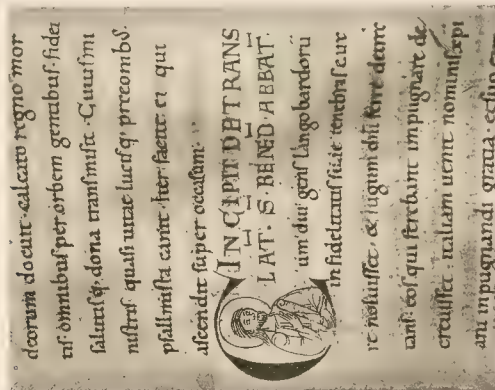 deorum docuit. calcato regno mor
tis. omnibus per orbem gentibus. fidei
salutisq; dona transmisit. Cuius mi
nistris quasi vitae lucisq; preconibus.
psalmista canit. Iter facite ei qui
ascendit super occasum.
INCIPIT DE TRANS
LAT. S. BENED. ABBAT.
Cum diu gens langobardorū
infidelitatis suae tenebras eur
re noluisset. & iugum dñi ferre
eos qui ferebant impugnare de
crevisset. italiam venit
impugnandi gratia.